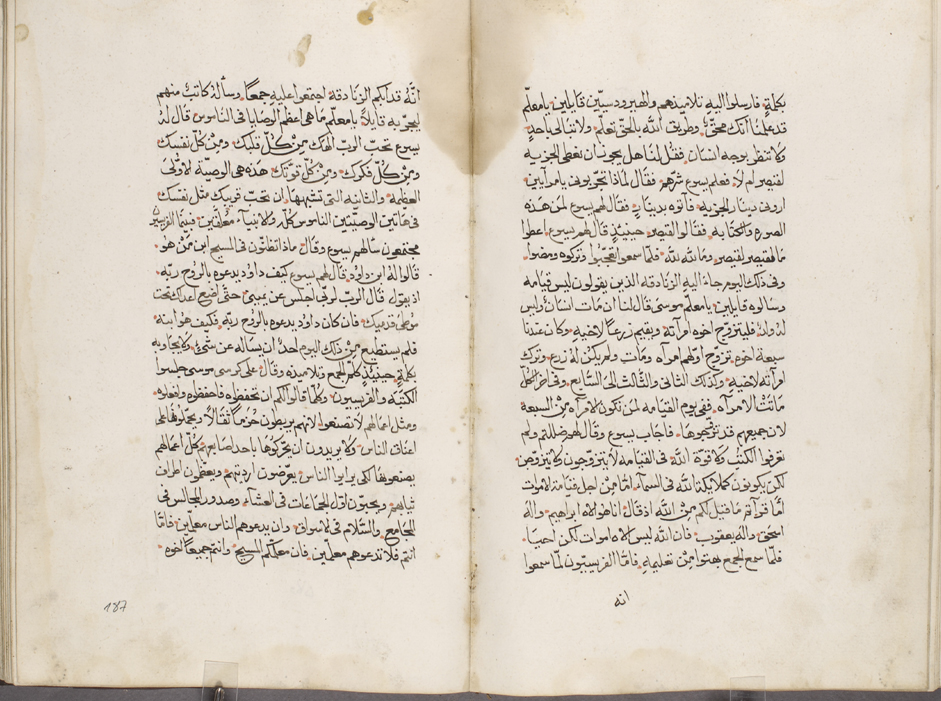 بكلمةٍ فارسلوا اليه تلاميذهم والهيروديسيّين قايلين يا معلّم
قد علمنا أنّك محقّ وطريق الله بالحقّ تعلّم ولا تبالي باحدٍ
ولا تنظر بوجه انسان فقل لنا هل يجوز ان نعطي الجزيه
لقيصر ام لا فعلم يسوع شرّهم فقال لماذا تجرّبوني يا مرآيين
اروني دينار الجزيه فأتوه بدينار فقال لهم يسوع لمن هذه
الصوره والكتابه فقالوا لقيصر حينيذٍ قال لهم يسوع اعطوا
ما لقيصر لقيصر وما لله لله فلمّا سمعوا تعجّبوا وتركوه ومضوا
وفي ذلك اليوم جاء اليه الزنادقه الذين يقولون ليس قيامه
وسالوه قايلين يا معلّم موسى قال لنا ان مات انسان وليس
له ولد فليتزوّج اخوه امرآته ويقيم زرعاً لاخيه وكان عندنا
سبعة اخوه تزوّج اوّلهم امرآه ومات ولم يكن له زرع وترك
امرآته لاخيه وكذلك الثاني والثالث الى السابع وفي اخر الكلّ
ماتت الامرآه ففي يوم القيامه لمن تكون الامرآه من السبعة
لان جميعهم قد تزوّجوها فاجاب يسوع وقال لهم ضللتم ولم
تعرفوا الكتب ولا قوّة الله في القيامه لا يتزوّجون ولا يتزوّجن
لكن يكونون كملايكة الله في السمآء امّا من اجل قيامة الاموات
أمّا قرآتم ما قيل لكم من الله اذ قال انا هو الاه ابراهيم واله
اسحق واله يعقوب فان الله ليس الاه اموات لكن احيآء
فلمّا سمع الجمع بهتوا من تعليمه فامّا الفريسيّون لمّا سمعوا
انه
أنّه قد ابكم الزنادقة اجتمعوا عليه جمعاً وسألهُ كاتبٌ منهم
ليجرّبه قايلاً يا معلّم ما هي اعظم الوصايا في الناموس قال لهُ
يسوع تحبّ الربّ الهك من كلّ قلبك ومن كلّ نفسك
ومن كلّ فكرك ومن كلّ قوّتك هذه هي الوصيّة الاولى
العظيمة والثانيه التي تشبهها ان تحبّ قريبك مثل نفسك
في هاتين الوصيّتين الناموس كلّه والانبيآء معلّقين فيما الفريسيّين
مجتمعون سالهم يسوع وقال ماذا تظنّون في المسيح ابن من هو
قالوا له ابن داود قال لهم يسوع كيف داود يدعوه بالروح ربّه
اذ يقول قال الربّ لربّي اجلس عن يميني حتّى اضع اعداك تحت
موطى قدميك فان كان داود يدعوه بالروح ربّه فكيف هو ابنه
فلم يستطيع من ذلك اليوم احدٌ ان يساله عن شيءٍ ولا يجاوبه
بكلمةٍ حينيذٍ كلّم الجمع وتلاميذه وقال على كرسي موسى جلسوا
الكتبة والفريسيون وكلّما قالوا لكم ان تحفظوه فاحفظوه وافعلوه
ومثل اعمالهم لا تصنعوا لانهم يربطون حزمًا ثقالاً ويحمّلوها على
اعناق الناس ولا يريدون ان يحرّكوها باحد اصابعهم وكلّ اعمالهم
يصنعوها لكي يراوا الناس يعرّضون ارديتهم ويعظّمون اطراف
ثيابهم ويحبّون اوّل الجماعات في العشاء وصدور المجالس في
المجامع والسّلام في الاسواق وان يدعوهم الناس معلّمين فامّا
انتم فلا تدعوهم معلّمين فان معلّمكم المسيح وانتم جميعاً اخوه
187